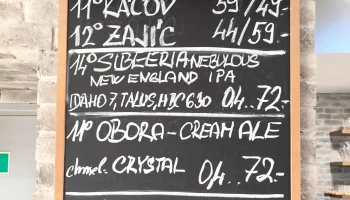 11° KÁCOV 39/49.-
12° ZAJÍC 44/59.-
14° SIBEERIA NEBULOUS
NEW ENGLAND IPA
IDAHO 7, TALUS, HBC 630 0,4..72.-
11° OBORA - CREAM ALE
chmel. CRYSTAL 0,4..72.-